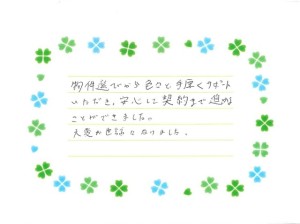 物件選びから色々と手厚くサポート
いただき、安心して契約まで進む
ことができました。
大変お世話になりました。